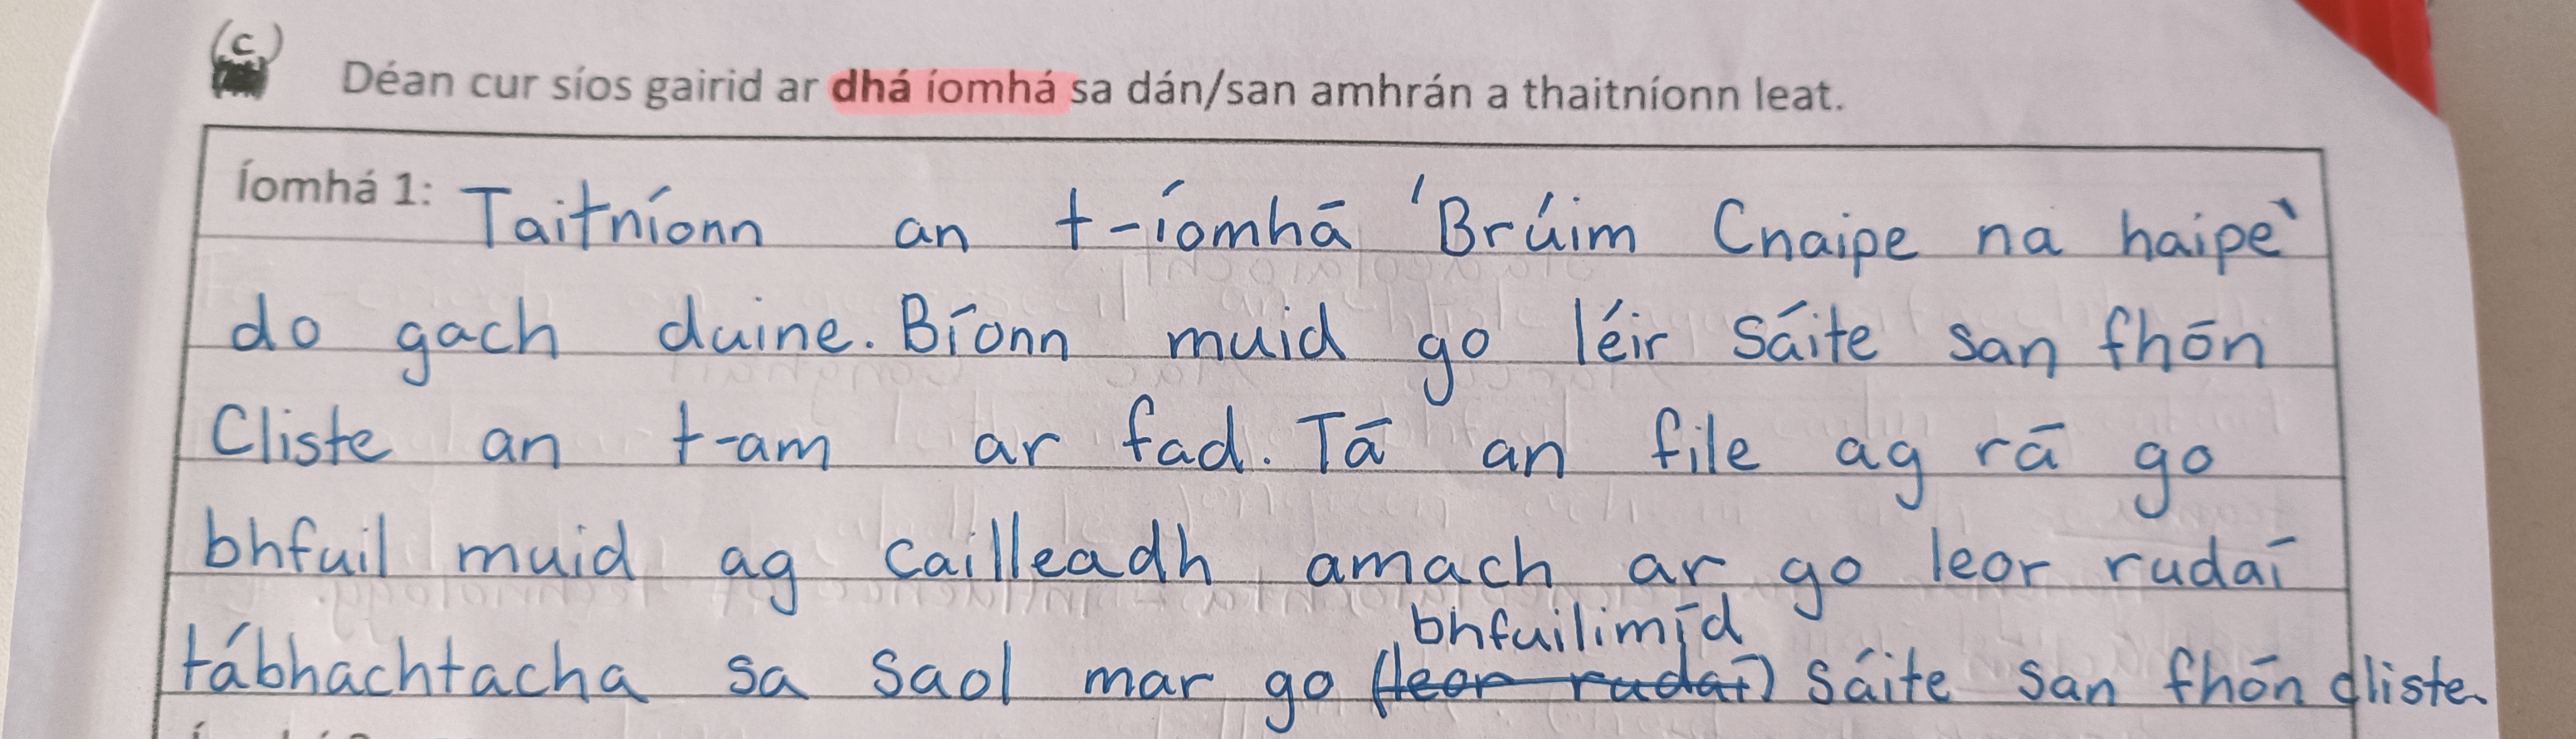 (c)
Déan cur síos gairid ar dhá íomhá sa dán/san amhrán a thaitníonn leat.
Íomhá 1: Taitníonn an t-íomhá 'Brúim Cnaipe na haipe'
do gach duine. Bíonn muid go léir Sáite san fhón
Cliste an t-am ar fad. Tá an file ag rá go
bhfuil muid ag cailleadh amach ar go leor rudaí
bhfuilimíd
tábhachtacha sa Saol mar go (leor rudaí) Sáite san fhón cliste.